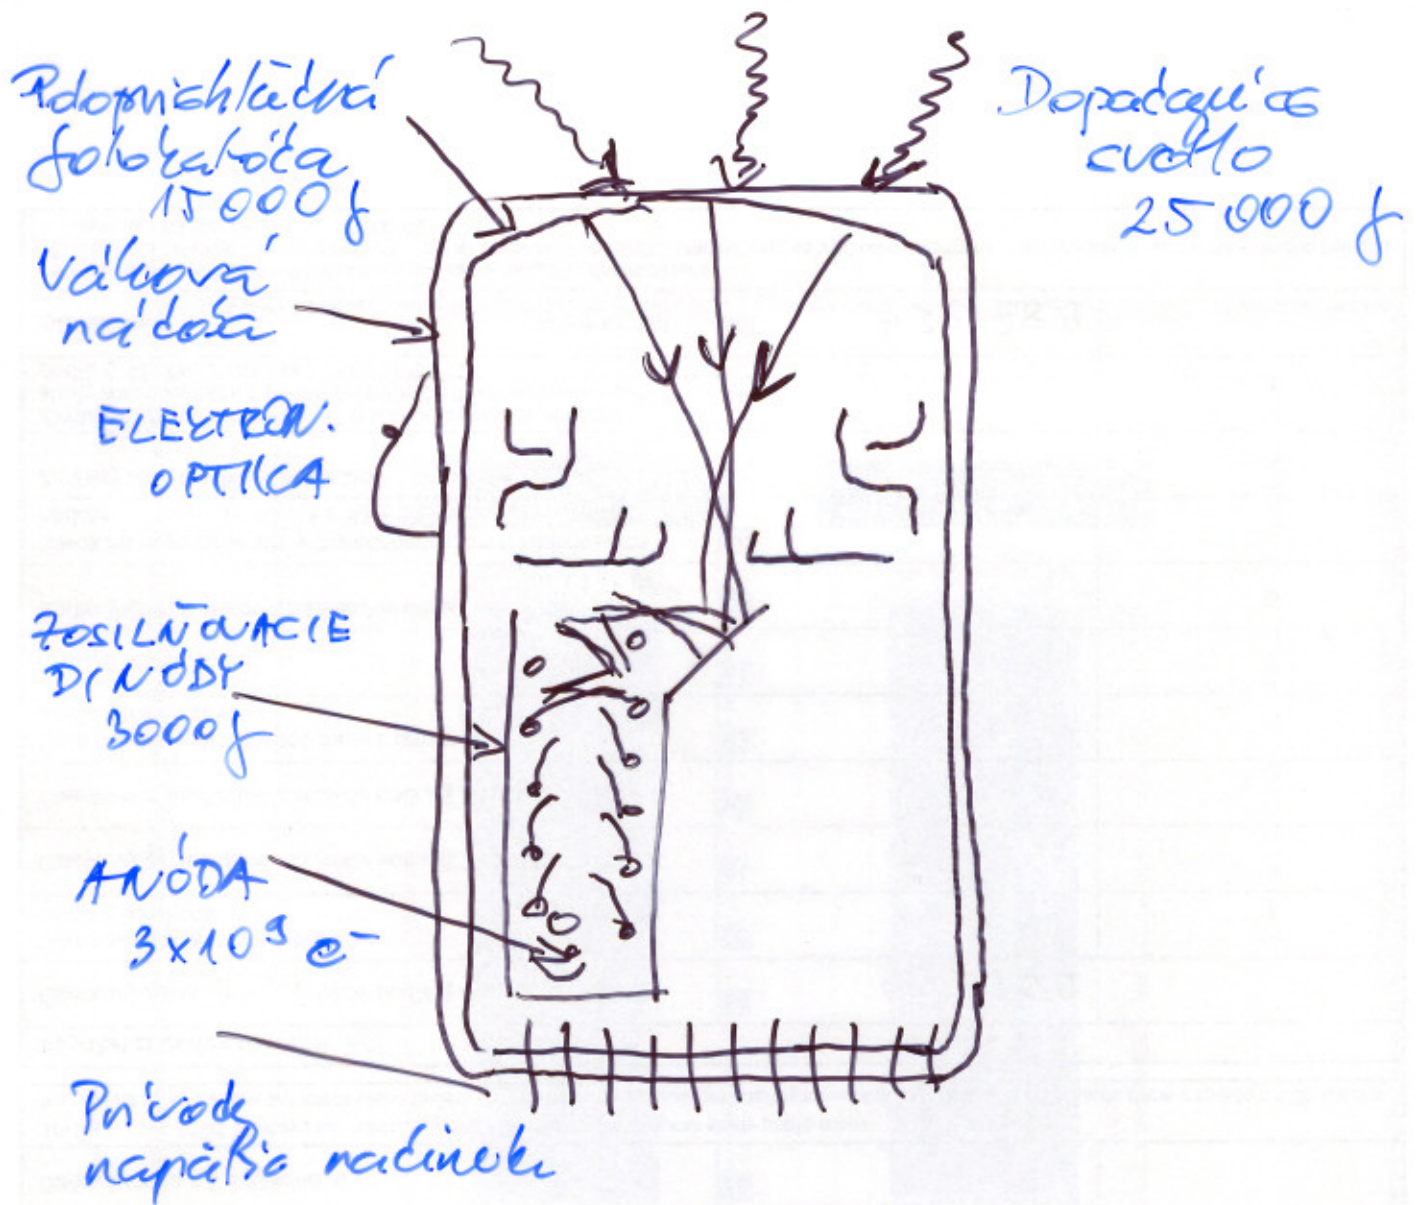 Polopriehľadná
fotokatóda
15 000 f
Vákuová
nádoba
ELEKTRÓN.
OPTIKA
ZOSILŇOVACIE
DINÓDY
3000 f
ANÓDA
3x10⁹ e⁻
Prívody
napätia
Dopadajúce
svetlo
25 000 f